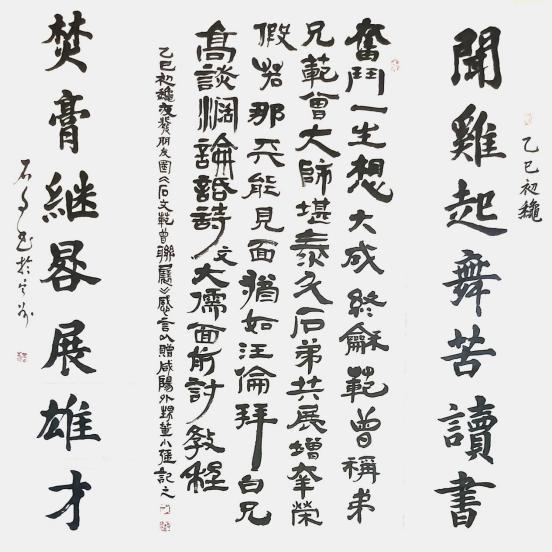 聞雞起舞苦讀書
乙巳初龝
奮鬥一生想大成終龢範曾稱弟
兄範曾大師堪泰斗石弟共展增榮
假若那天能見面猶如汪倫拜白兄
高談濶論話詩文大儒面前討教程
乙巳初龝夜發朋友圈《石文範曾聯展》感言以贈咸陽外甥董小記之
焚膏継晷展雄才
石文書於